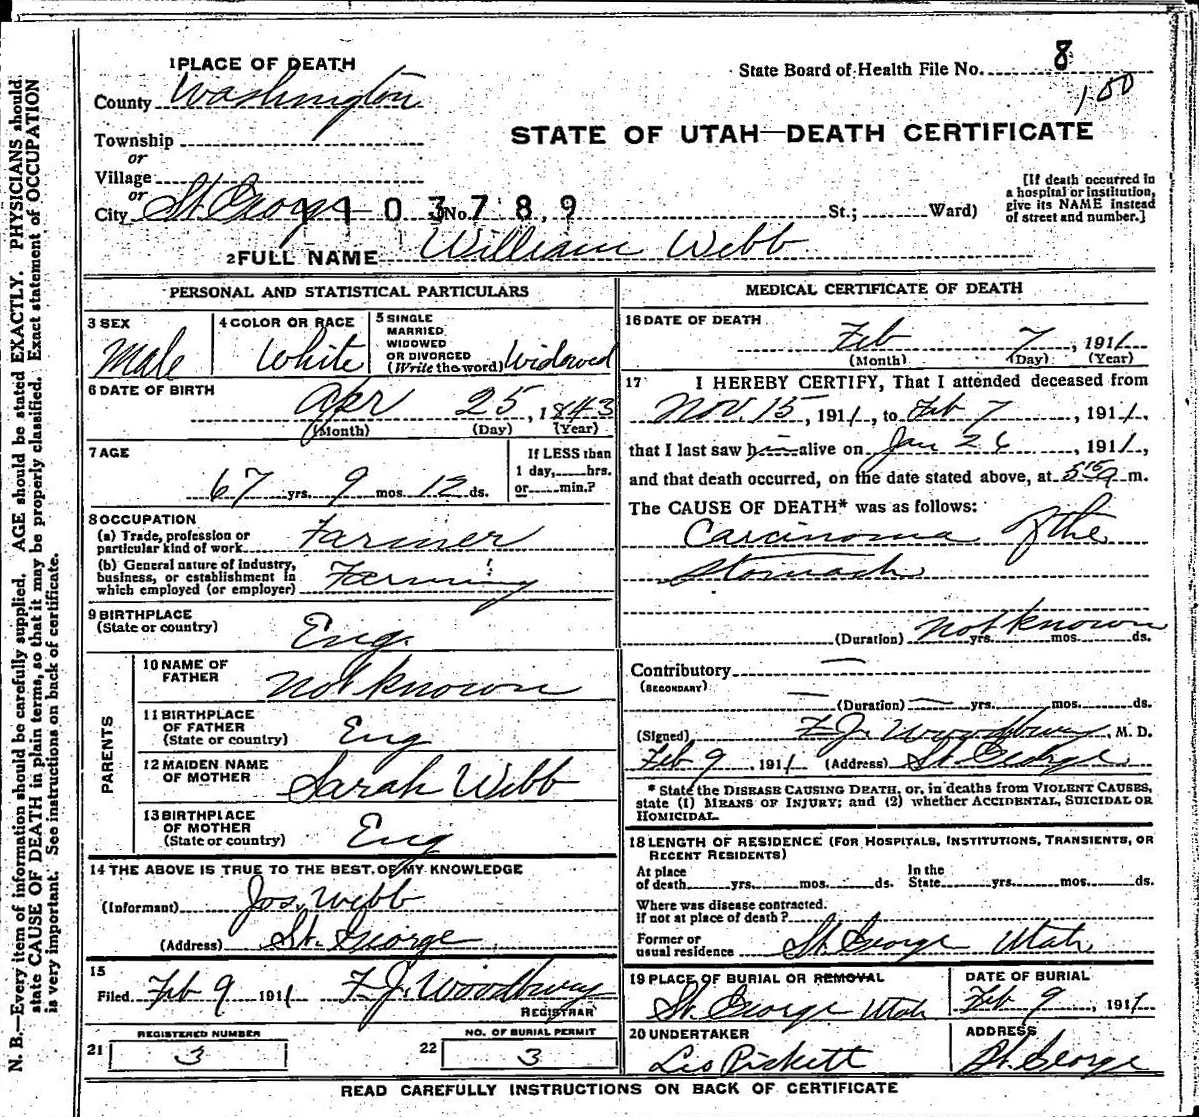 1 PLACE OF DEATH
County Washington
State Board of Health File No. 8
100
STATE OF UTAH—DEATH CERTIFICATE
Township
or
Village
or
City St. George No. St.; Ward)
1103789
[If death occurred in
a hospital or institution,
give its NAME instead
of street and number.]
2 FULL NAME William Webb
PERSONAL AND STATISTICAL PARTICULARS
3 SEX
Male
4 COLOR OR RACE
White
5 SINGLE
MARRIED
WIDOWED
OR DIVORCED
(Write the word) Widowed
6 DATE OF BIRTH
Apr 25, 1843
(Month) (Day) (Year)
7 AGE
67 yrs. 9 mos. 12 ds.
If LESS than
1 day, hrs.
or min.?
8 OCCUPATION
(a) Trade, profession or
particular kind of work Farmer
(b) General nature of industry,
business, or establishment in
which employed (or employer) Farming
9 BIRTHPLACE
(State or country) Eng.
PARENTS
10 NAME OF
FATHER not known
11 BIRTHPLACE
OF FATHER
(State or country) Eng
12 MAIDEN NAME
OF MOTHER Sarah Webb
13 BIRTHPLACE
OF MOTHER
(State or country) Eng
14 THE ABOVE IS TRUE TO THE BEST OF MY KNOWLEDGE
(Informant) Jos. Webb
(Address) St. George
15
Filed Feb 9 1911 F. J. Woodbury
REGISTRAR
REGISTERED NUMBER
21 3
NO. OF BURIAL PERMIT
22 3
MEDICAL CERTIFICATE OF DEATH
16 DATE OF DEATH
Feb 7, 1911
(Month) (Day) (Year)
17 I HEREBY CERTIFY, That I attended deceased from
Nov. 15, 1911, to Feb 7, 1911,
that I last saw him alive on Jan 26, 1911,
and that death occurred, on the date stated above, at 5 15 a m.
The CAUSE OF DEATH* was as follows:
Carcinoma of the
Stomach
(Duration) not known yrs. mos. ds.
Contributory —
(SECONDARY)
— (Duration) — yrs. mos. ds.
(Signed) F. J. Woodbury, M. D.
Feb 9, 1911 (Address) St. George
* State the DISEASE CAUSING DEATH, or, in deaths from VIOLENT CAUSES,
state (1) MEANS OF INJURY; and (2) whether ACCIDENTAL, SUICIDAL OR
HOMICIDAL.
18 LENGTH OF RESIDENCE (FOR HOSPITALS, INSTITUTIONS, TRANSIENTS, OR
RECENT RESIDENTS)
At place
of death yrs. mos. ds.
In the
State yrs. mos. ds.
Where was disease contracted.
If not at place of death?
Former or
usual residence St. George Utah
19 PLACE OF BURIAL OR REMOVAL
St. George Utah
DATE OF BURIAL
Feb 9, 1911
20 UNDERTAKER
Leo Pickett
ADDRESS
St. George
READ CAREFULLY INSTRUCTIONS ON BACK OF CERTIFICATE
N. B.—Every item of information should be carefully supplied. AGE should be stated EXACTLY. PHYSICIANS should
state CAUSE OF DEATH in plain terms, so that it may be properly classified. Exact statement of OCCUPATION
is very important. See instructions on back of certificate.